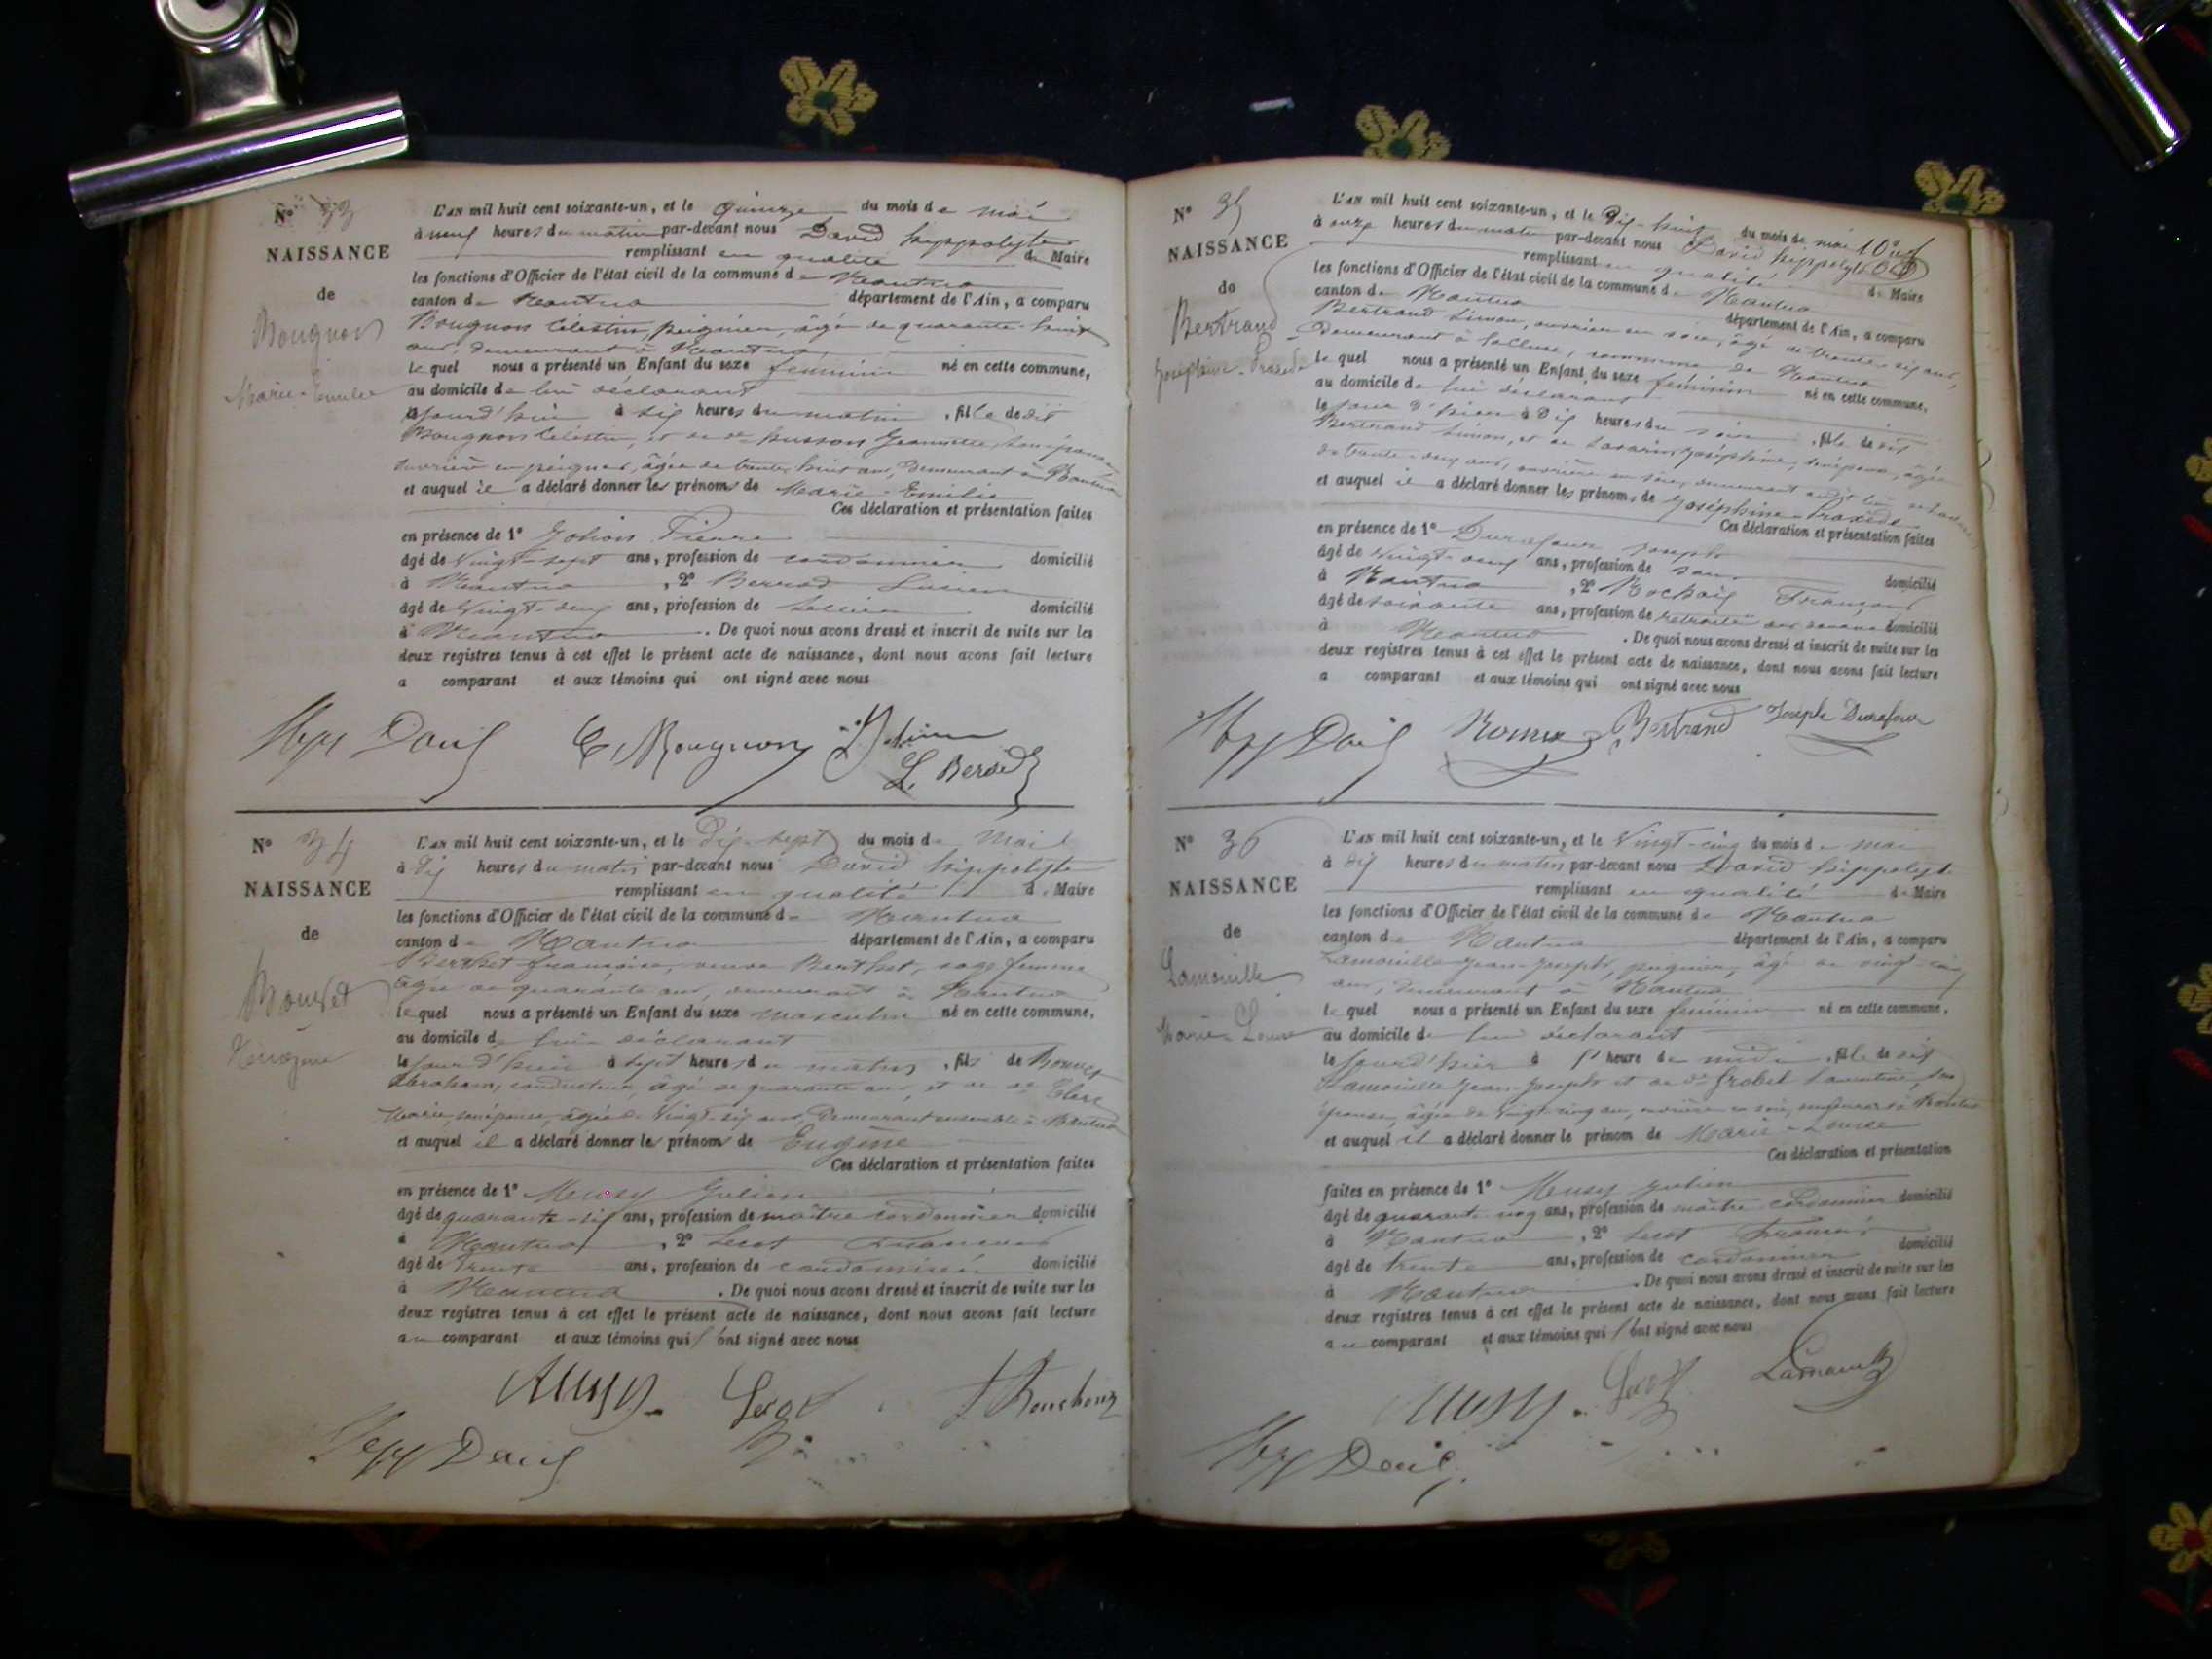 N° 33
NAISSANCE
de
Bougnon
Marie-Emilie
L'AN mil huit cent soixante-un, et le quinze du mois de mai
à neuf heures du matin par-devant nous David hippolyte
remplissant en qualité de Maire
les fonctions d'Officier de l'état civil de la commune de Nantua
canton de Nantua département de l'Ain, a comparu
Bougnon Célestin, peignier, âgé de quarante-huit
ans, demeurant à Nantua
lequel nous a présenté un Enfant du sexe féminin né en cette commune,
au domicile de lui déclarant
jourd'hui à six heures du matin, fille de dit
Bougnon Célestin, et de de husson Jeannette, son épouse
ouvrière en peignes, âgée de trente huit ans, demeurant à Nantua
et auquel il a déclaré donner les prénoms de Marie-Emilie
Ces déclaration et présentation faites
en présence de 1° Pierre
âgé de Vingt-sept ans, profession de cordonnier domicilié
à Nantua, 2° Berrod Lucien
âgé de Vingt-deux ans, profession de sellier domicilié
à Nantua. De quoi nous avons dressé et inscrit de suite sur les
deux registres tenus à cet effet le présent acte de naissance, dont nous avons fait lecture
a comparant et aux témoins qui ont signé avec nous
Hyp David C. Bougnon
L. Berrod
N° 34
NAISSANCE
de
Bouvet
Eugène
L'AN mil huit cent soixante-un, et le dix-sept du mois de Mai
à dix heures du matin par-devant nous David hippolyte
remplissant en qualité de Maire
les fonctions d'Officier de l'état civil de la commune de Nantua
canton de Nantua département de l'Ain, a comparu
Berthet françoise, veuve Berthet, sage femme
âgée de quarante ans, demeurant à Nantua
lequel nous a présenté un Enfant du sexe masculin né en cette commune,
au domicile de lui déclarant
le jourd'hui à sept heures du matin, fils de Bouvet
Abraham, conducteur, âgé de quarante ans, et de de Clerc
Marie, son épouse, âgée de Vingt-six ans, demeurant ensemble à Nantua
et auquel il a déclaré donner le prénom de Eugène
Ces déclaration et présentation faites
en présence de 1° Musy Julien
âgé de quarante-six ans, profession de maître cordonnier domicilié
à Nantua, 2° Secot François
âgé de Trente ans, profession de cordonnier domicilié
à Nantua. De quoi nous avons dressé et inscrit de suite sur les
deux registres tenus à cet effet le présent acte de naissance, dont nous avons fait lecture
au comparant et aux témoins qui ont signé avec nous
Musy Secot
Hyp David
N° 35
NAISSANCE
de
Bertrand
Joséphine-Praxède
L'AN mil huit cent soixante-un, et le Dix-huit du mois de mai
à onze heures du matin par-devant nous David hippolyte
remplissant en qualité de Maire
les fonctions d'Officier de l'état civil de la commune de Nantua
canton de Nantua département de l'Ain, a comparu
Bertrand Simon, ouvrier en soie, âgé de trente-six ans,
demeurant à commune de Nantua
lequel nous a présenté un Enfant du sexe féminin né en cette commune,
au domicile de lui déclarant
le jour d'hier à Dix heures du soir, fille de dit
Bertrand Simon, et de Savarin Joséphine, son épouse, âgée
de trente-deux ans, ouvrière en soie, demeurant
et auquel il a déclaré donner les prénoms de Joséphine-Praxède
Ces déclaration et présentation faites
en présence de 1° Durafour Joseph
âgé de Vingt-deux ans, profession de sans domicilié
à Nantua, 2° François
âgé de soixante ans, profession de retraité des douanes domicilié
à Nantua. De quoi nous avons dressé et inscrit de suite sur les
deux registres tenus à cet effet le présent acte de naissance, dont nous avons fait lecture
a comparant et aux témoins qui ont signé avec nous
Hyp David Bertrand Joseph Durafour
N° 36
NAISSANCE
de
Lamouille
Marie-Louise
L'AN mil huit cent soixante-un, et le Vingt-cinq du mois de mai
à dix heures du matin par-devant nous David hippolyte
remplissant en qualité de Maire
les fonctions d'Officier de l'état civil de la commune de Nantua
canton de Nantua département de l'Ain, a comparu
Lamouille Jean-Joseph, peignier, âgé de vingt-cinq
ans, demeurant à Nantua
lequel nous a présenté un Enfant du sexe féminin né en cette commune,
au domicile de lui déclarant
le jour d'hier à 1' heure de midi, fille de dit
Lamouille Jean-Joseph et de de Grobet Laurentine, son
épouse, âgée de vingt-cinq ans, ouvrière en soie, demeurant à Nantua
et auquel il a déclaré donner le prénom de Marie-Louise
Ces déclaration et présentation
faites en présence de 1° Musy Julien
âgé de quarante cinq ans, profession de maître cordonnier domicilié
à Nantua, 2° Secot François
âgé de trente ans, profession de cordonnier domicilié
à Nantua. De quoi nous avons dressé et inscrit de suite sur les
deux registres tenus à cet effet le présent acte de naissance, dont nous avons fait lecture
au comparant et aux témoins qui ont signé avec nous
Musy Secot Lamouille
Hyp David